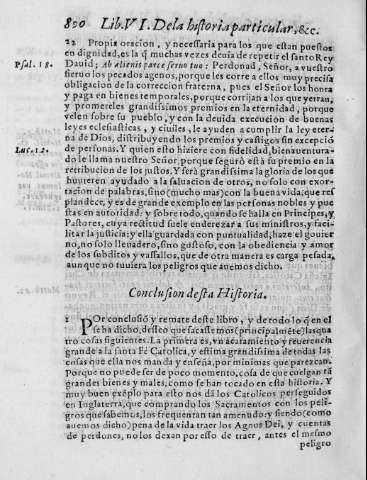 800 Lib. VI. De la historia particular, &c.
22 Propia oracion, y necessaria para los que estan puestos
en dignidad, es la q̃ muchas vezes deuia de repetir el santo Rey
Psal. 18. Dauid; Ab alienis parce seruo tuo: Perdonad, Señor, a vuestro
sieruo los pecados agenos, porque les corre a ellos muy precisa
obligacion de la correccion fraterna, pues el Señor los honra
y paga en bienes temporales, porque corrijan a los que yerran,
y prometeles grandissimos premios en la eternidad, porque
velen sobre su pueblo, y con la deuida execucion de buenas
leyes eclesiasticas, y ciuiles, le ayuden a cumplir la ley eter-
na de Dios, distribuyendo los premios y castigos sin excepciõ
Luc. 12. de personas. Y quien esto hiziere con fidelidad, bienauentura
do le llama nuestro Señor, porque segurò està su premio en la
retribucion de los justos. Y serà grandissima la gloria de los que
huuieren ayudado a la saluacion de otros, no solo con exor-
tacion de palabras, sino (mucho mas) con la buena vida; que res
plandece, y es de grande exemplo en las personas nobles y pue
stas en autoridad: y sobre todo, quando se halla en Principes, y
Pastores, cuya rectitud suele enderezar a sus ministros, y faci-
litar la justicia; y ella guardada con puntualidad, haze el gouier
no, no solo lleuadero, sino gustoso, con la obediencia y amor
de los subditos y vassallos, que de otra manera es carga pesada,
aunque no tuuiera los peligros que auemos dicho.
Conclusion desta Historia.
1 POr conclusiõ y remate deste libro, y de todo lo q̃ en el
se ha dicho, desseo que sacassemos (principalmẽte) las qua
tro cosas siguientes. La primera es, vn acatamiento y reuerencia
grande a la santa Fè Catolica, y estima grandissima de todas las
cosas que ella nos manda y enseña, por minimas que parezcan.
Porque no puede ser de poco momento, cosa de que cuelgan tã
grandes bienes y males, como se han tocado en esta historia. Y
muy buen exẽplo para esto nos dã los Catolicos perseguidos
en Inglaterra, que comprando los Sacramentos con los peli-
gros que sabemos, los frequentan tan amenudo: y siendo (como
auemos dicho) pena de la vida traer los Agnus Dei, y cuentas
de perdones, no los dexan por esso de traer, antes el mesmo
peligro